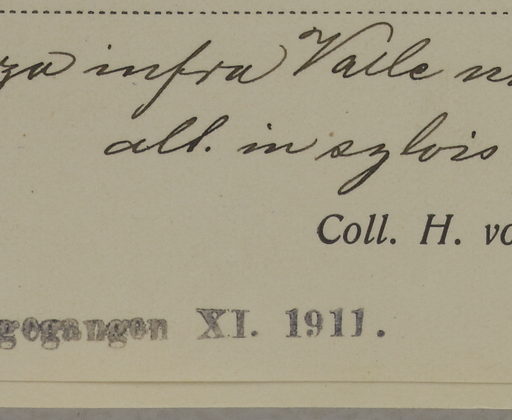 za infra Valle n
all. in sylvis
Coll. H. vo
gegangen XI. 1911.